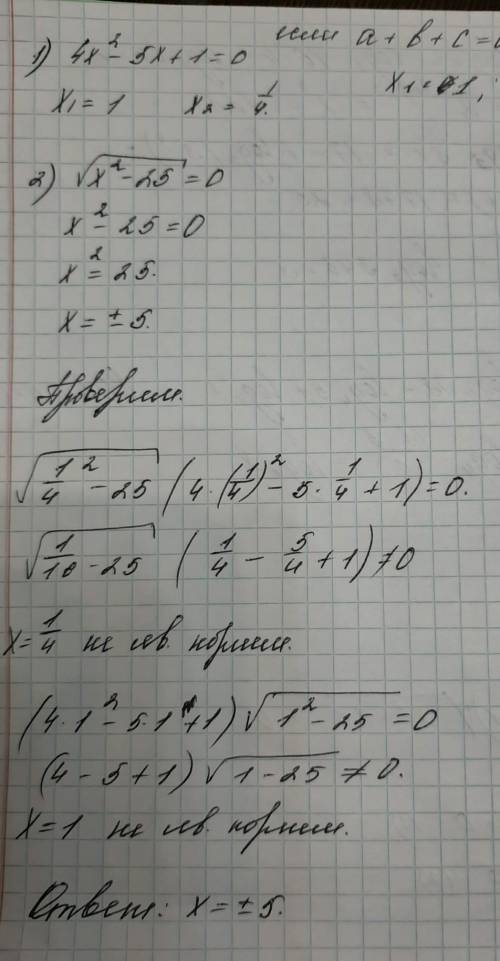 или a + b + c = 0
1) 4x² - 5x + 1 = 0
x₁ = 1,
x₁ = 1 x₂ = 1/4.
2) √(x² - 25) = 0
x² - 25 = 0
x² = 25.
x = ± 5.
Проверим.
√(1/4² - 25) (4 · (1/4)² - 5 · 1/4 + 1) = 0.
√(1/16 - 25) (1/4 - 5/4 + 1) ≠ 0
x = 1/4 не яв. корнем.
(4 · 1² - 5 · 1 + 1) √(1² - 25) = 0
(4 - 5 + 1) √(1 - 25) ≠ 0.
x = 1 не яв. корнем.
Ответ: x = ± 5.